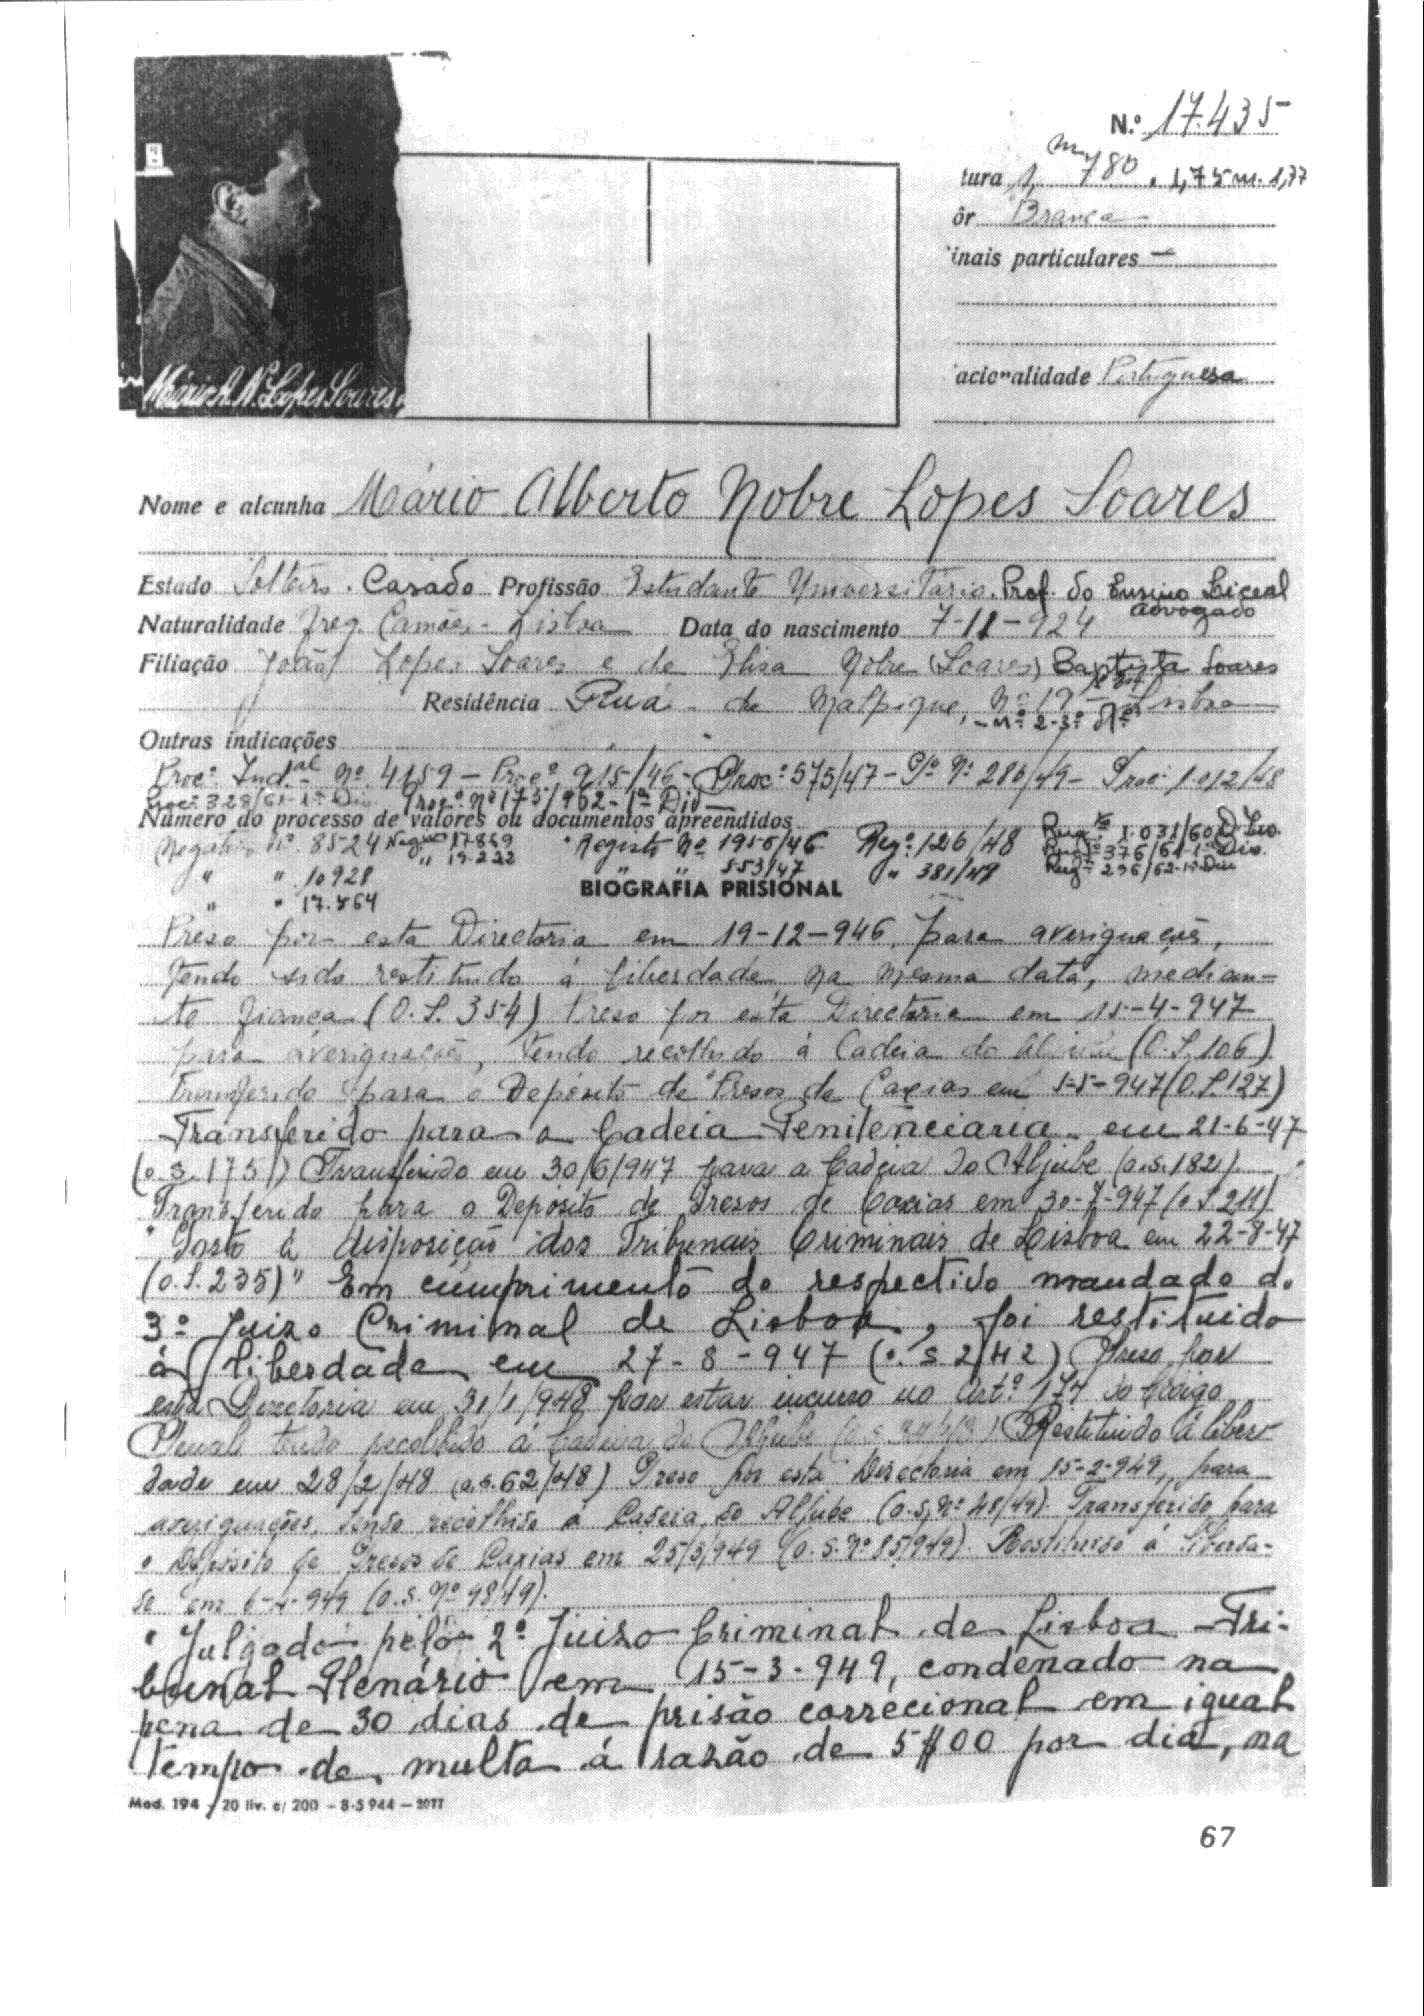 N.º 17.435
tura 1,780 m . 1,75 m. 1,77
ôr Branca
inais particulares —
acionalidade Portuguesa
Mário A. N. Lopes Soares
Nome e alcunha Mário Alberto Nobre Lopes Soares
Estado Solteiro. Casado Profissão Estudante Universitário. Prof. do Ensino Liceal
advogado
Naturalidade Freg. Camões - Lisboa Data do nascimento 7-12-924
Filiação João Lopes Soares e de Elisa Nobre (Soares) Baptista Soares
Residência Rua de Malpique, Nº 19 Lisboa
- nº 2-3º
Outras indicações
Procº Ind.al Nº. 4159 - Procº 915/46 - Procº 575/47 - Pº Nº 286/49 - Proc. 1.012/48
Procº 328/61-1ª Div. Procº nº 175/962-1ª Div.
Número do processo de valores ou documentos apreendidos
Negativo nº. 8524 17869 Registo Nº 1956/46 Regº 126/48 1.031/60
" 19.222 553/47 " 381/48 376/61-1ª Div.
" " 10928 296/62-1ª Div
" " 17.564
BIOGRAFIA PRISIONAL
Preso por esta Directoria em 19-12-946, para averiguações,
tendo sido restituido à liberdade na mesma data, median-
te fiança (O.S. 354) Preso por esta Directoria em 15-4-947
para averiguações, tendo recolhido à Cadeia do Aljube (O.S. 106)
Transferido para o Depósito de Presos de Caxias em 5-5-947 (O.S. 127)
Transferido para a Cadeia Penitenciaria em 21-6-47
(o.s. 175) Transferido em 30/6/947 para a Cadeia do Aljube (o.s. 182).
Transferido para o Depósito de Presos de Caxias em 30-7-947 (o.S 211)
"Posto à disposição dos Tribunais Criminais de Lisboa em 22-8-47
(O.S. 235)" Em cumprimento do respectivo mandado do
3º Juizo Criminal de Lisboa, foi restituido
à liberdade em 27-8-947 (o.s 242) Preso por
esta Directoria em 31/1/948 por estar incurso no Artº. 174 do Código
Penal tendo recolhido à Cadeia do Aljube Restituido à liber-
dade em 28/2/48 (o.s. 62/48) Preso por esta Directoria em 15-2-949, para
averiguações, tendo recolhido à Cadeia do Aljube (o.s. Nº 48/49). Transferido para
o Depósito de Presos de Caxias em 25/3/949 (o.s. Nº 85/949). Restituido à liberda-
de em 6-4-949 (o.s. Nº 98/49).
"Julgado pelo 2º Juizo Criminal de Lisboa - Tri-
bunal Plenário em 15-3-949, condenado na
pena de 30 dias de prisão correcional em igual
tempo de multa á razão de 5$00 por dia, na
Mod. 194 - 20 liv. c/ 200 - 8-5 944 - 2077
67